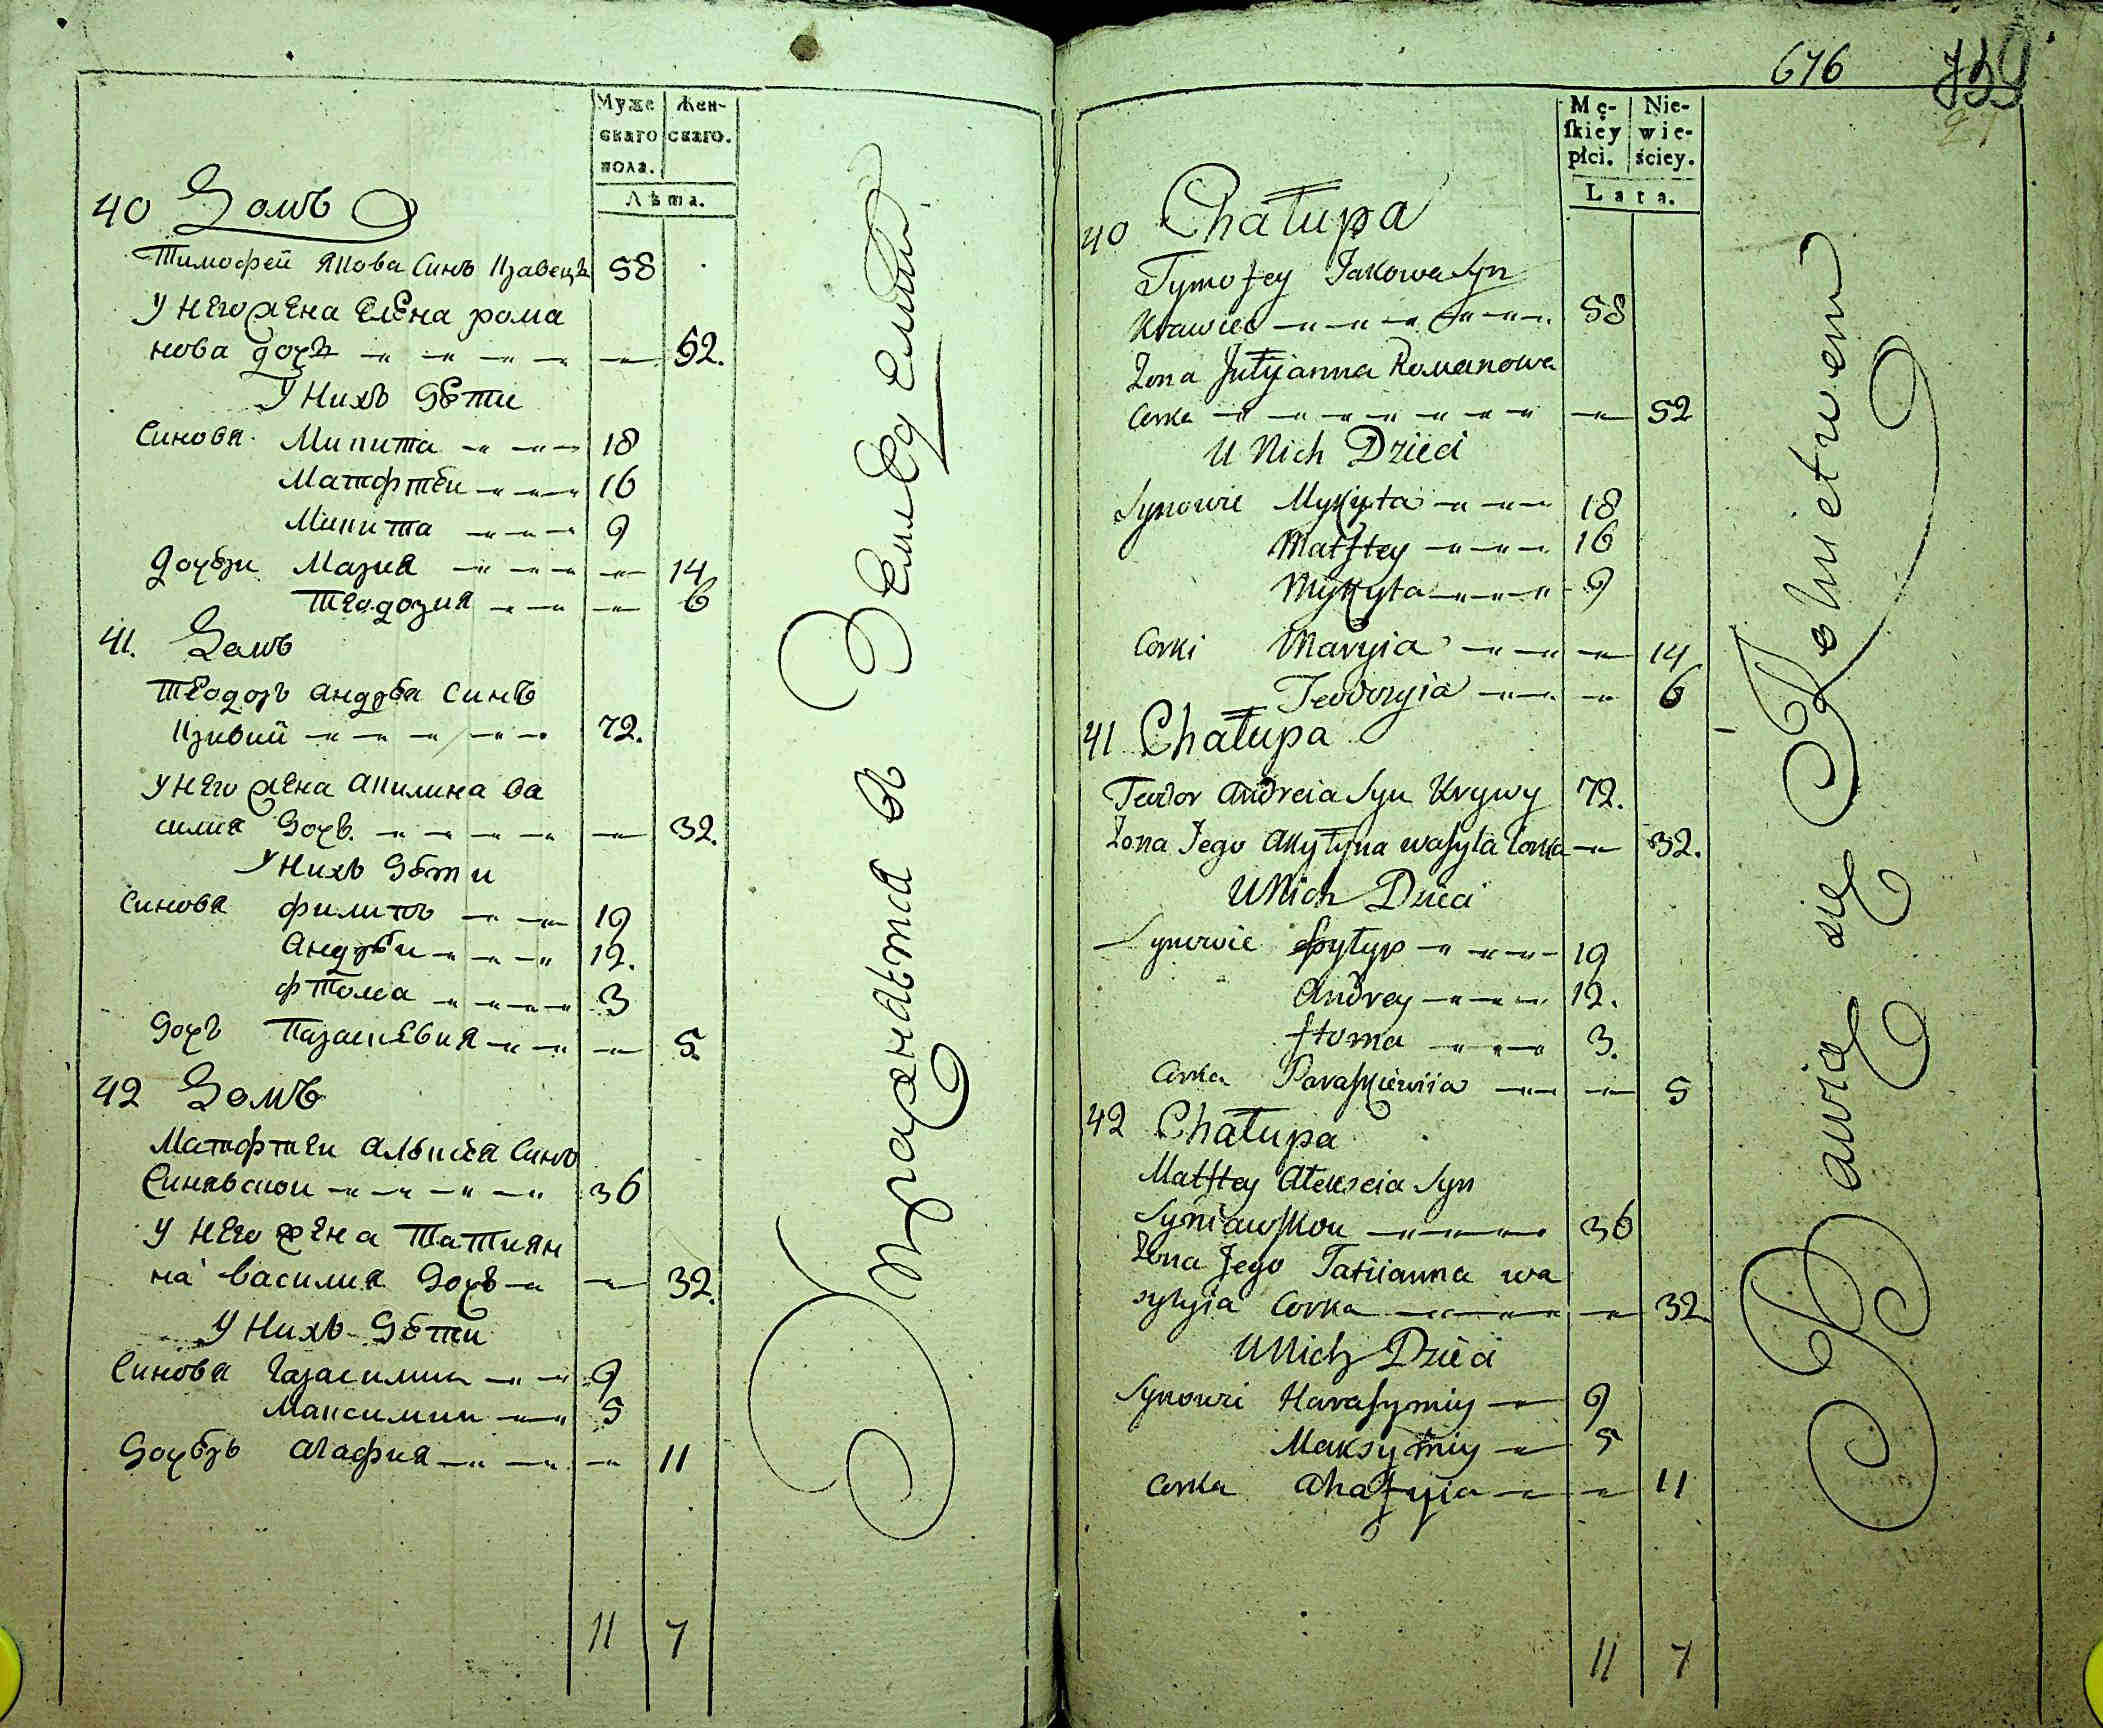 Муже Жен-
скаго скаго.
пола.
Лѣта.
40 Домъ
Тимофей Якова Синъ Кравецъ 58
У него жена Елена рома
нова дочъ 52.
У Нихъ Дѣти
Синова Микита 18
Матфтѣи 16
Микита 9
дочѣри Мария 14
Теодозия 6
41. Домъ
Теодоръ андрѣа Синъ
Кривий 72.
У него жена акилина ва
силия дочъ. 32.
У Нихъ Дѣти
Синова филипъ 19
андрѣи 12.
фтома 3
дочъ Параскевия 5.
42 Домъ
Матфтеи алѣксѣя Синъ
Синявскои 36
У него жена Татиян
на василия дочъ 32.
У Нихъ Дѣти
Синова Гарасимии 9
Максимии 5
дочѣръ агафия 11
11 7
Упражняется въ Земледелии.
676 739
Mę- Nie-
skiey wie-
płci. ściey.
Lata.
40 Chałupa
Tymofey Jakowa Syn
Krawiec 58
Zona Jułyianna Romanowa
Corka 52
U Nich Dzieci
Synowie Mykyta 18
Matftey 16
Mykyta 9
Corki Maryia 14
Teodozyia 6
41 Chałupa
Teodor Andreia Syn Krywy 72.
Zona Jego Akyłyna wasyla Corka 32.
U Nich Dzieci
Synowie fyłyp 19
Andrey 12.
ftoma 3.
Corka Paraskiewiia 5
42 Chałupa
Matftey Ałekseia Syn
Syniawskou 36
Zona Jego Tatiianna wa
sylyia Corka 32
U Nich Dzieci
Synowi Harasymiy 9
Maksymiy 5
Corka Ahafyia 11
11 7
Bawią się Rolnictwem